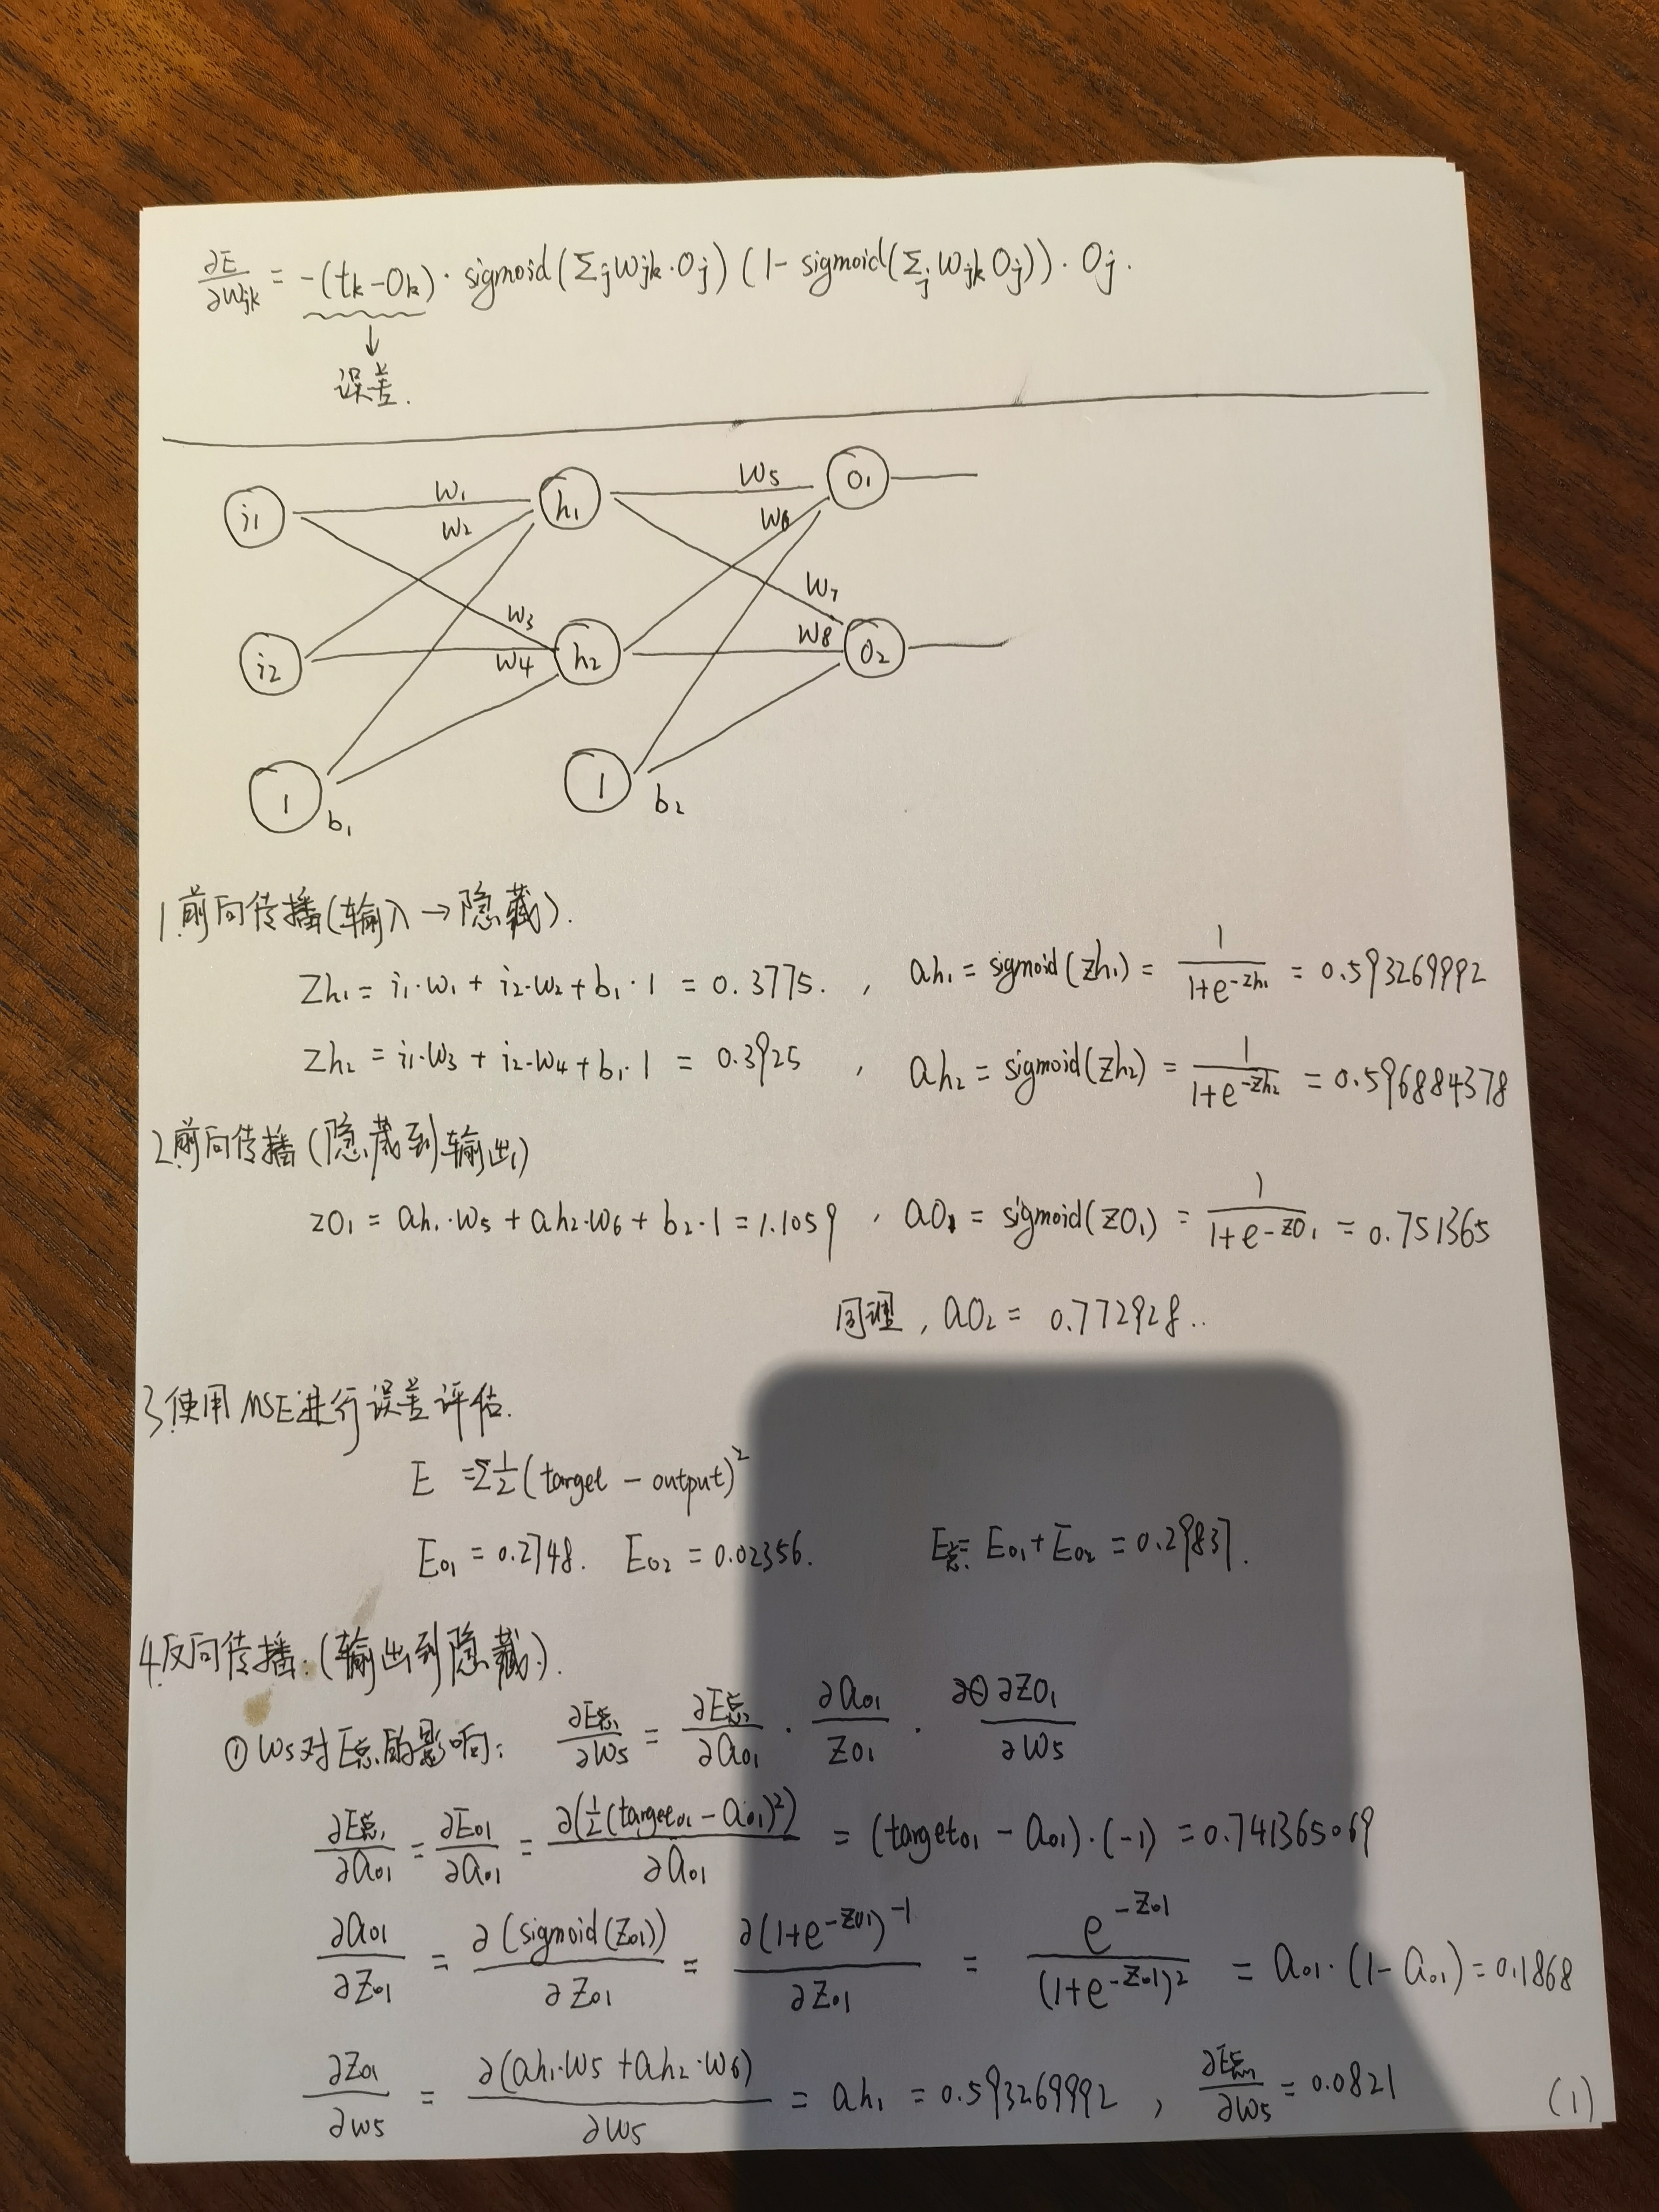 ∂E/∂Wjk = -(tk-Ok)·sigmoid(ΣjWjk·Oj)(1-sigmoid(ΣjWjkOj))·Oj.
↓
误差.
i1 W1 W2 h1 W5 W6 O1
i2 W3 W4 h2 W7 W8 O2
1 b1 1 b2
1.前向传播(输入→隐藏).
Zh1 = i1·W1 + i2·W2 + b1·1 = 0.3775. , ah1 = sigmoid(zh1) = 1/(1+e^-zh1) = 0.593269992
Zh2 = i1·W3 + i2·W4 + b1·1 = 0.3925 , ah2 = sigmoid(Zh2) = 1/(1+e^-Zh2) = 0.596884378
2.前向传播(隐藏到输出)
zO1 = ah1·W5 + ah2·W6 + b2·1 = 1.1059 , aO1 = sigmoid(zO1) = 1/(1+e^-zO1) = 0.751365
同理, aO2 = 0.772928..
3.使用MSE进行误差评估.
E = Σ1/2(target - output)^2
Eo1 = 0.2748. Eo2 = 0.02356. E总 = Eo1 + Eo2 = 0.29837.
4.反向传播.(输出到隐藏).
① W5对E总的影响: ∂E总/∂W5 = ∂E总/∂ao1 · ∂ao1/Zo1 · ∂ZO1/∂W5
∂E总/∂ao1 = ∂Eo1/∂ao1 = ∂(1/2(targeto1 - ao1)^2)/∂ao1 = (targeto1 - ao1)·(-1) = 0.741365069
∂ao1/∂Zo1 = ∂(sigmoid(Zo1))/∂Zo1 = ∂(1+e^-Zo1)^-1/∂Zo1 = e^-Zo1/(1+e^-Zo1)^2 = ao1·(1-ao1) = 0.1868
∂Zo1/∂W5 = ∂(ah1·W5 + ah2·W6)/∂W5 = ah1 = 0.593269992 , ∂E总/∂W5 = 0.0821
(1)